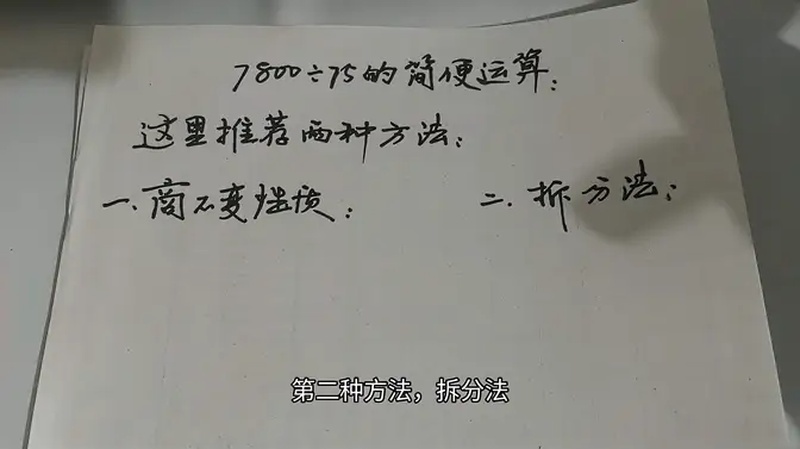 7800÷75的简便运算:
这里推荐两种方法:
一.商不变性质: 二.拆分法:
第二种方法，拆分法